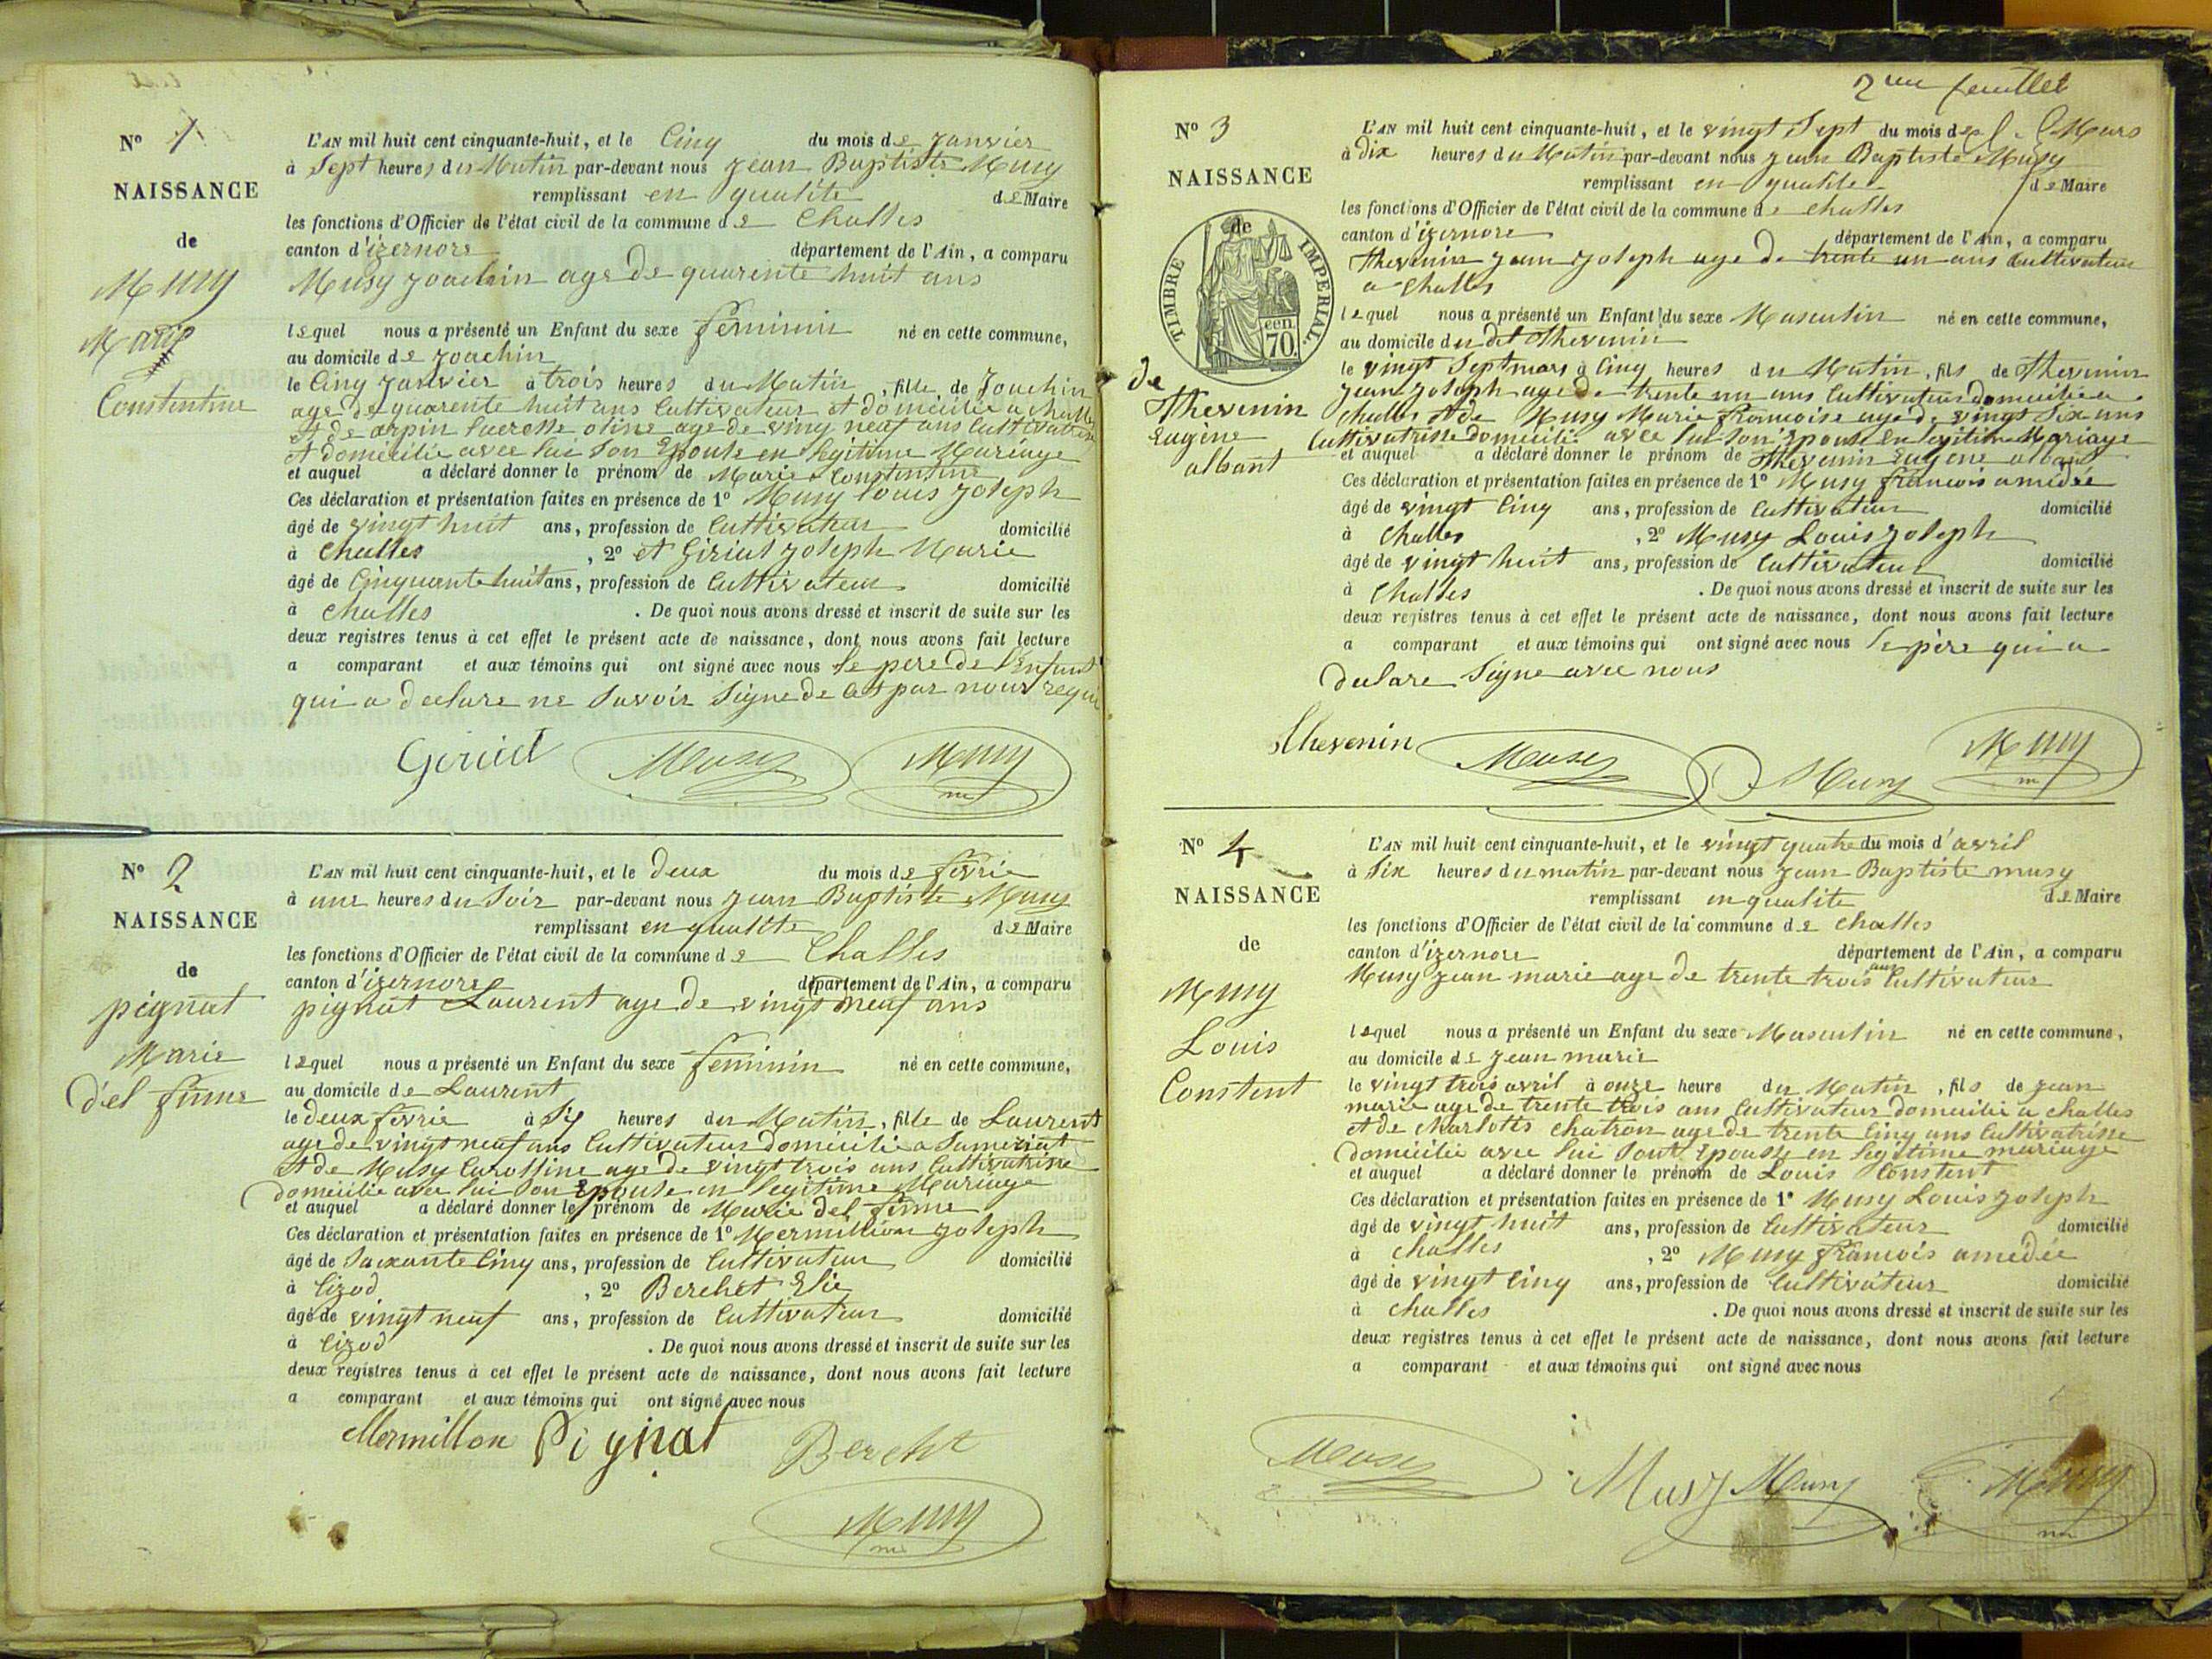 N° 1
NAISSANCE
de
Musy
Marie
Constentine
L'AN mil huit cent cinquante-huit, et le Cinq du mois de Janvier
à Sept heures du Matin par-devant nous Jean Baptiste Musy
remplissant en qualité de Maire
les fonctions d'Officier de l'état civil de la commune de Challes
canton d'izernore département de l'Ain, a comparu
Musy Joachin age de quarente huit ans
lequel nous a présenté un Enfant du sexe feminin né en cette commune,
au domicile de Joachin
le Cinq Janvier à trois heures du Matin, fille de Joachin
age de quarente huit ans Cultivateur et domicilie a Challes
et de arpin age de ving neuf ans Cultivatrise
et domicilie avec lui Son Epouse en legitime Mariage
et auquel a déclaré donner le prénom de Marie Constentine
Ces déclaration et présentation faites en présence de 1° Musy louis Joseph
âgé de vingt huit ans, profession de Cultivateur domicilié
à Challes, 2° et Giriat Joseph Marie
âgé de Cinquante huit ans, profession de Cultivateur domicilié
à Challes. De quoi nous avons dressé et inscrit de suite sur les
deux registres tenus à cet effet le présent acte de naissance, dont nous avons fait lecture
a comparant et aux témoins qui ont signé avec nous le pere de l'Enfant
qui a declare ne Savoir Signe de Ces par nous requi
Musy Musy
N° 2
NAISSANCE
de
pignat
Marie
del finne
L'AN mil huit cent cinquante-huit, et le deux du mois de fevrie
à une heures du Soir par-devant nous Jean Baptiste Musy
remplissant en qualité de Maire
les fonctions d'Officier de l'état civil de la commune de Challes
canton d'izernore département de l'Ain, a comparu
pignat Laurent age de vingt neuf ans
lequel nous a présenté un Enfant du sexe feminin né en cette commune,
au domicile de Laurent
le deux fevrie à Six heures du Matin, fille de Laurent
age de vingt neuf ans Cultivateur domicilie a Samerint
et de Musy Carolline age de vingt trois ans Cultivatrise
domicilie avec lui Son Epouse en legitime Mariage
et auquel a déclaré donner le prénom de Marie del finne
Ces déclaration et présentation faites en présence de 1° Mermillion Joseph
âgé de Soixante Cinq ans, profession de Cultivateur domicilié
à Cizod, 2° Berchet Elie
âgé de vingt neuf ans, profession de Cultivateur domicilié
à Cizod. De quoi nous avons dressé et inscrit de suite sur les
deux registres tenus à cet effet le présent acte de naissance, dont nous avons fait lecture
a comparant et aux témoins qui ont signé avec nous
Mermillon Pignat Bercht
Musy
2me feuillet
N° 3
NAISSANCE
de
TIMBRE IMPERIAL
cen
70.
de
Thevenin
Eugène
albant
L'AN mil huit cent cinquante-huit, et le vingt Sept du mois de Mars
à Dix heures du Matin par-devant nous Jean Baptiste Musy
remplissant en qualite de Maire
les fonctions d'Officier de l'état civil de la commune de Challes
canton d'izernore département de l'Ain, a comparu
Thevenin Jean Joseph age de trente un ans Cultivateur
a Challes
lequel nous a présenté un Enfant du sexe Masculin né en cette commune,
au domicile du dit Thevenin
le vingt Sept mars à Cinq heures du Matin, fils de Thevenin
Jean Joseph age de trente un ans Cultivateur domicilie a
Challes et de Musy Marie francoise age de vingt Six ans
Cultivatrisse domicilie avec lui Son Epouse en legitime Mariage
et auquel a déclaré donner le prénom de Thevenin Eugene albant
Ces déclaration et présentation faites en présence de 1° Musy francois amédée
âgé de vingt Cinq ans, profession de Cultivateur domicilié
à Challes, 2° Musy Louis Joseph
âgé de vingt huit ans, profession de Cultivateur domicilié
à Challes. De quoi nous avons dressé et inscrit de suite sur les
deux registres tenus à cet effet le présent acte de naissance, dont nous avons fait lecture
a comparant et aux témoins qui ont signé avec nous le père qui a
declare Signe avec nous
Thevenin Musy Musy Musy
N° 4
NAISSANCE
de
Musy
Louis
Constent
L'AN mil huit cent cinquante-huit, et le vingt quatre du mois d'avril
à Six heures du matin par-devant nous Jean Baptiste musy
remplissant en qualite de Maire
les fonctions d'Officier de l'état civil de la commune de Challes
canton d'izernore département de l'Ain, a comparu
Musy Jean marie age de trente trois ans Cultivateur
lequel nous a présenté un Enfant du sexe Masculin né en cette commune,
au domicile de Jean marie
le vingt trois avril à onze heure du Matin, fils de Jean
marie age de trente trois ans Cultivateur domicilie a Challes
et de Charlotte Chatron age de trente Cinq ans Cultivatrisse
domicilie avec lui Sont Epouse en legitime mariage
et auquel a déclaré donner le prénom de Louis Constent
Ces déclaration et présentation faites en présence de 1° Musy Louis Joseph
âgé de vingt huit ans, profession de Cultivateur domicilié
à Challes, 2° Musy francois amédée
âgé de vingt Cinq ans, profession de Cultivateur domicilié
à Challes. De quoi nous avons dressé et inscrit de suite sur les
deux registres tenus à cet effet le présent acte de naissance, dont nous avons fait lecture
a comparant et aux témoins qui ont signé avec nous
Musy Musy Musy Musy